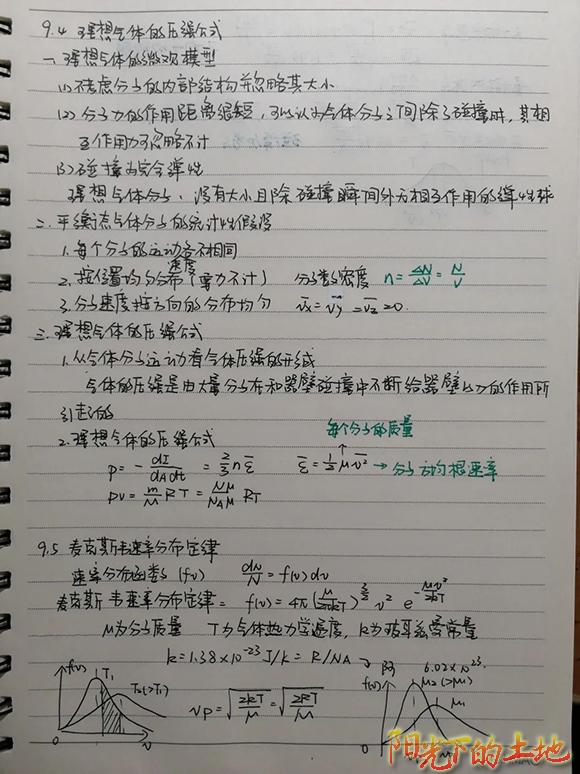 9.4 理想气体的压强公式
一、理想气体的微观模型
(1) 不考虑分子的内部结构并忽略其大小
(2) 分子力的作用距离很短，可以认为气体分子之间除了碰撞时，其相
互作用力可忽略不计
(3) 碰撞为完全弹性
理想气体分子、没有大小且除碰撞瞬间外无相互作用的弹性球
二、平衡态气体分子的统计性假设
1. 每个分子的运动速度各不相同
2. 按位置均匀分布（重力不计） 分子数密度 n = ΔN/ΔV = N/V
3. 分子速度按方向的分布均匀 v̄x = v̄y = v̄z = 0.
三、理想气体的压强公式
1. 从气体分子运动看气体压强的形成
气体的压强是由大量分子在和器壁碰撞中不断给器壁以力的作用所
引起的
2. 理想气体的压强公式 每个分子的质量
p = - dI/dAdt = 2/3 n ε̄ ε̄ = 1/2 μ v̄² → 分子方均根速率
PV = m/M RT = Nμ/NAμ RT
9.5 麦克斯韦速率分布定律
速率分布函数 f(v) dN/N = f(v)dv
麦克斯韦速率分布定律 = f(v) = 4π(μ/2πkT)^3/2 v² e^-μv²/2kT
μ为分子质量 T为气体热力学温度, k为玻耳兹曼常量
k = 1.38×10⁻²³ J/k = R/NA → 阿 6.02×10²³.
f(v) T1 T2(>T1) 0 v
vp = √2kT/μ = √2RT/M
f(v) μ2(>μ1) μ1 0
阳光下的土地